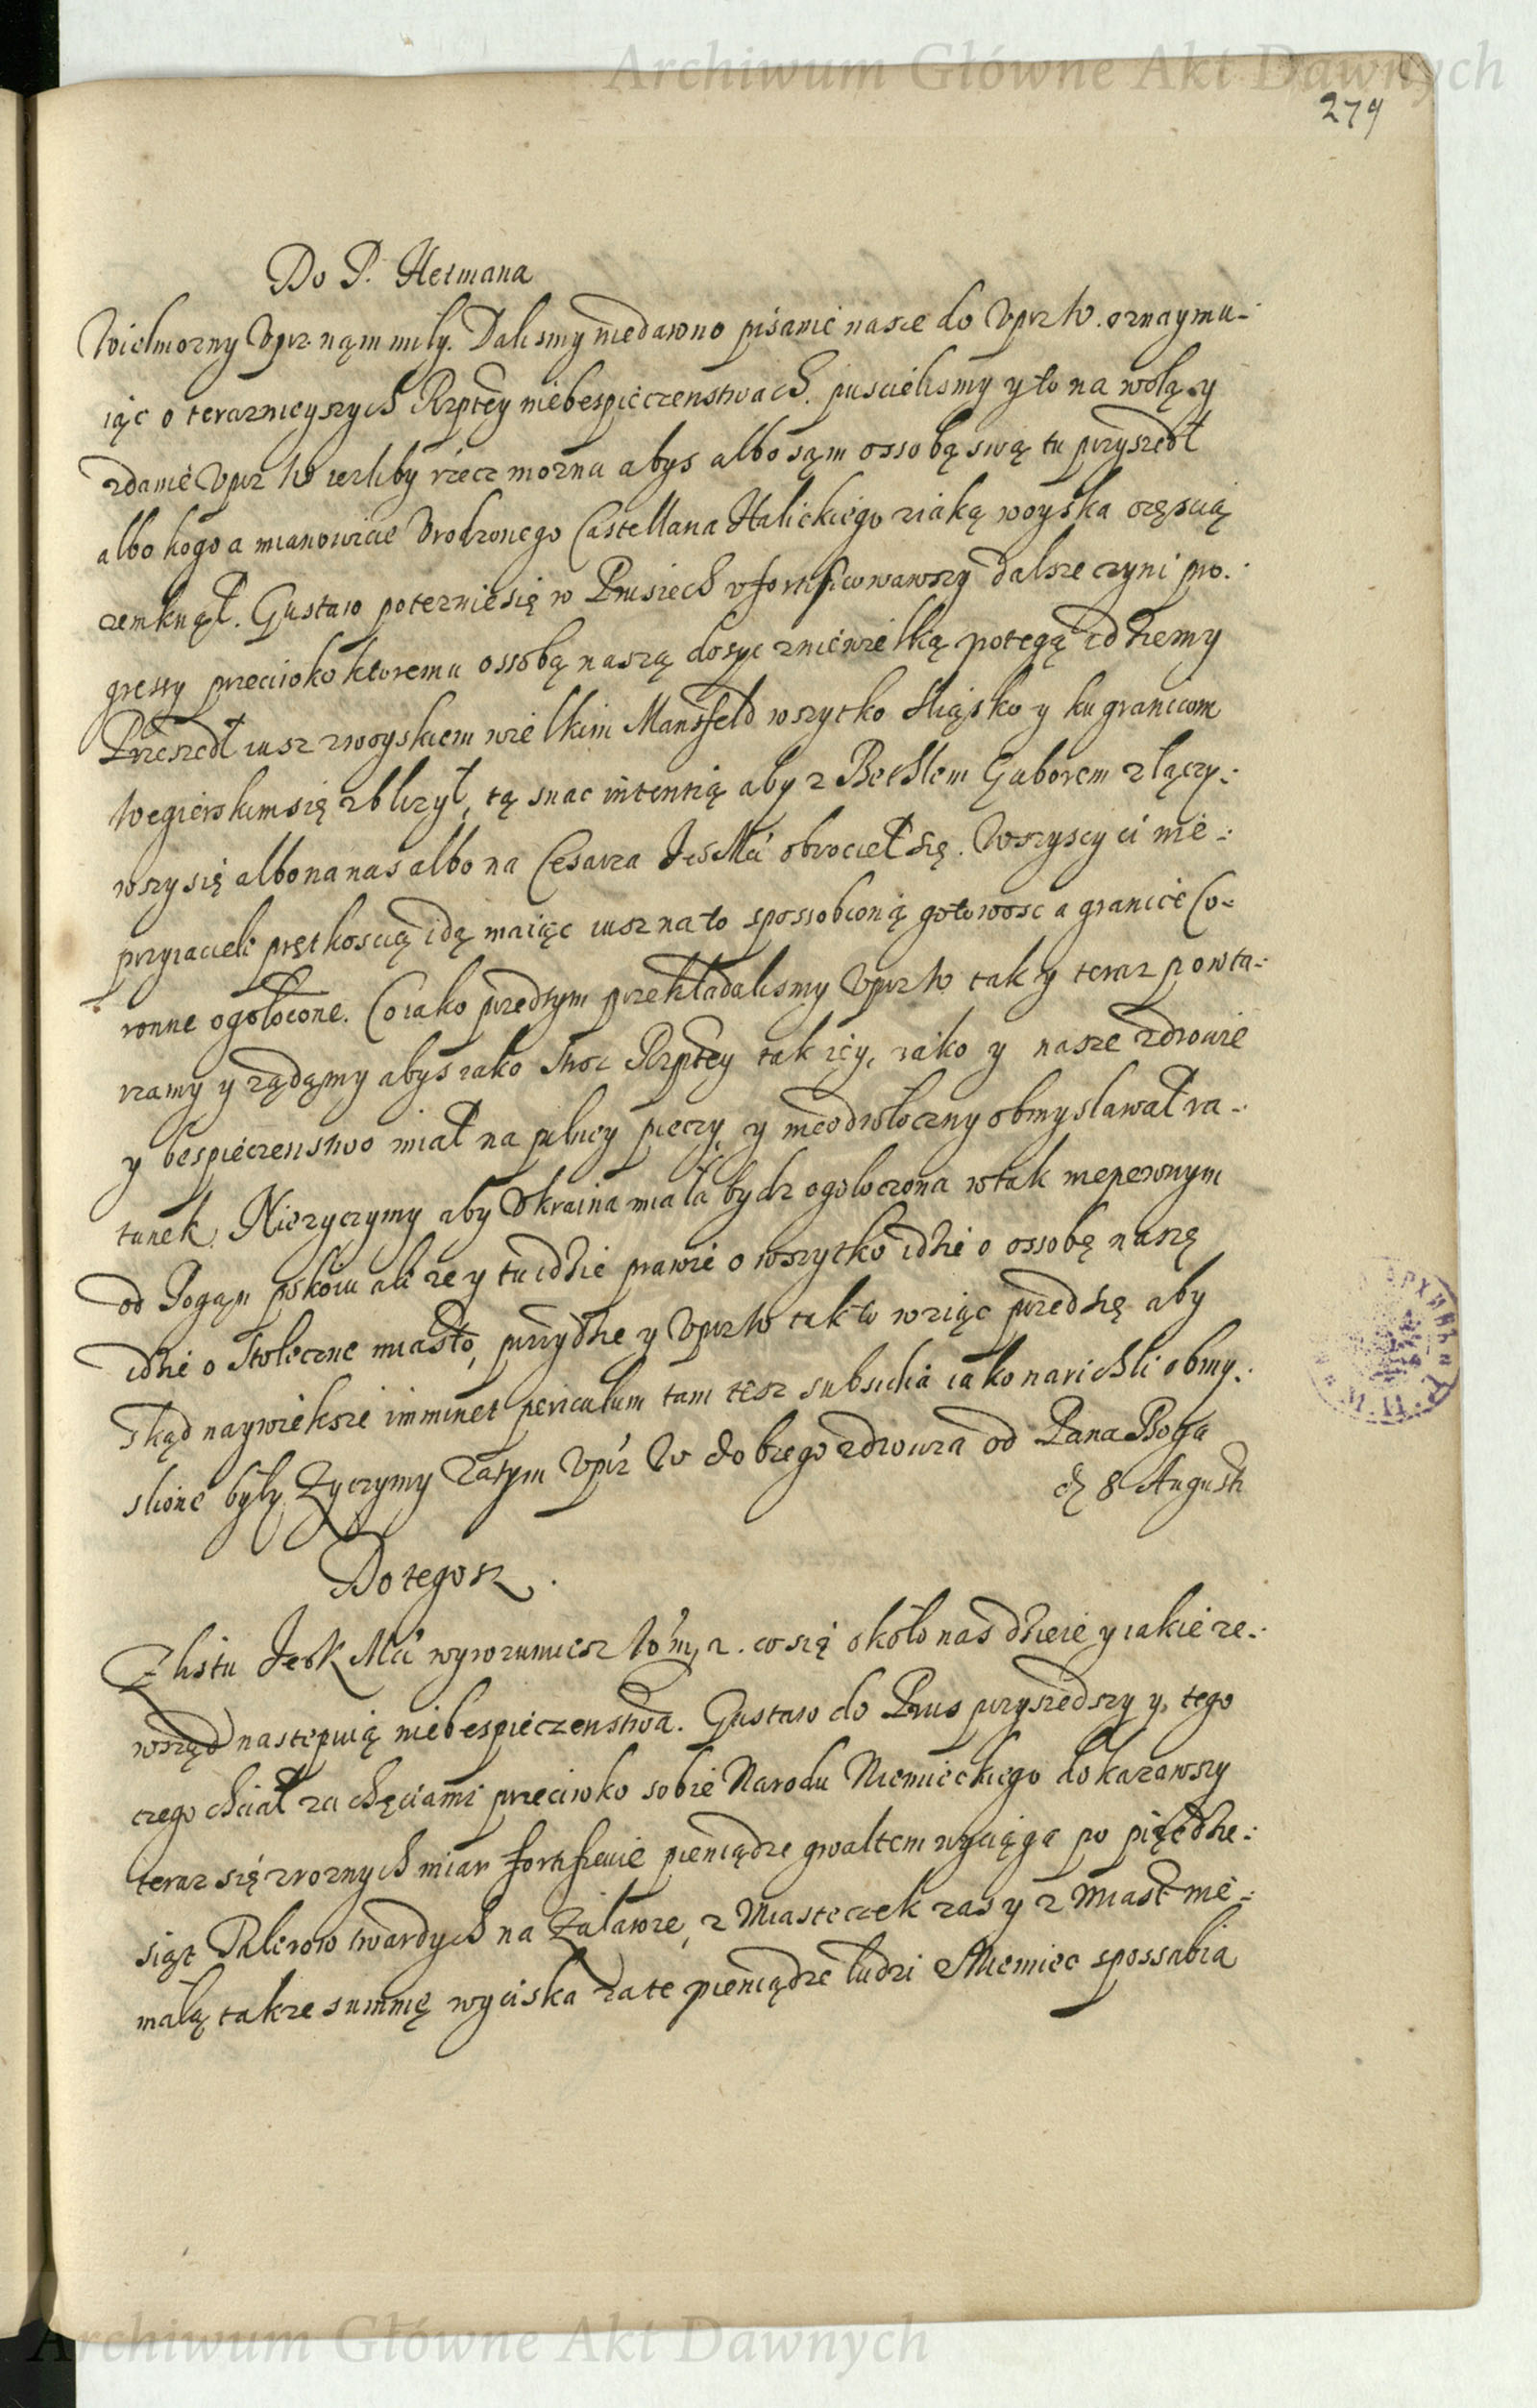 Archiwum Główne Akt Dawnych
279
Do P. Hetmana
Wielmozny Vprz. nąm miły. Dalismy niedawno pisanie nasze do Vprz W. oznaymu-
iąc o teraznieyszych Rzptey niebespieczenstwach. puscielismy y to na wolą y
zdanie Vprz W iezliby rzecz mozna abys albo sąm ossobą swą tu przyszedł
albo kogo a mianowicie Vrodzonego Castellana Halickiego ziaką woyska częscią
zemknął. Gustaw poteznie się w Prusiech vfortificowawszy dalsze czyni pro-
gressy przeciwko ktoremu ossobą naszą dosyc zniewielką potegą idziemy
Przeszedł iusz zwoyskiem wielkim Mansfeld wszytko Sląsko y ku granicom
Wegierskim się zblizył, tą snac intentią aby z Bethlem Gaborem złączy-
wszy się albo na nas albo na Cesarza JesMci obrocieł się. Wszyscy ci nie-
przyiaciele prętkoscią idą maiąc iusz na to spossobioną gotowosc a granice Co-
ronne ogołocone. Co iako przedtym przekładalismy Vprz W tak y teraz powta-
rzamy y ządąmy abys iako Stroz Rzptey tak iey, iako y nasze zdrowie
y bespieczenstwo miał na pilney pieczy y nieodwłoczny obmyslawał ra-
tunek. Niezyczymy aby Vkraina miała bydz ogołoczona wtak niepewnym
od Pogąn pokoiu ale ze y tu idzie prawie o wszytko idzie o ossobę naszę
idzie o Stołeczne miasto, przydzie y Vprz W tak to wziąc przed się aby
skąd naywieksze imminet periculum tam tesz subsidia iako narichli obmy-
slione były Zyczymy Zatym Vprz W dobrego zdrowia od Pana Boga
d 8 Augusti
Do tegosz.
Z listu JeoK Mci wyrozumiesz co się około nas dzieie y iakie ze-
wsząd nastepuią niebespieczenstwa. Gustaw do Prus przyszedszy y tego
czego chciał za chęciami przeciwko sobie Narodu Niemieckiego dokazawszy
teraz się zroznych miar fortificuie pieniądze gwałtem wyciąga po pięcdzie-
siąt Talerow twardych na Zuławie, z Miasteczek zas y z Miast nie-
małą takze summę wyciska za te pieniądze ludzi z Niemiec spossabia
Archiwum Główne Akt Dawnych